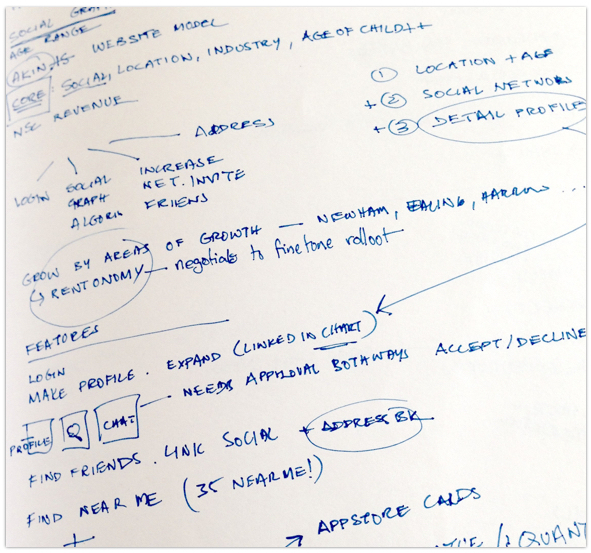 SOCIAL GRAPH
AGE RANGE
AKIN TO WEBSITE MODEL
CORE: SOCIAL, LOCATION, INDUSTRY, AGE OF CHILD ++
REVENUE
① LOCATION + AGE
+ ② SOCIAL NETWORK
+ ③ DETAIL PROFILE
ADDRESS
LOGIN
SOCIAL
GRAPH
INCREASE
NET. INVITE
FRIENS
GROW BY AREAS OF GROWTH — NEWHAM, EALING, HARROW ...
↳ RENTONOMY — to finetone rolloot
FEATURES
LOGIN
MAKE PROFILE. EXPAND (LINKED IN CHART)
PROFILE CHAT — NEEDS APPROVAL BOTH WAYS ACCEPT/DECLINE
FIND FRIENDS. LINK SOCIAL + ADDRESS BK
FIND NEAR ME (35 NEAR ME!)
+
→ APPSTORE CARDS
QUANT